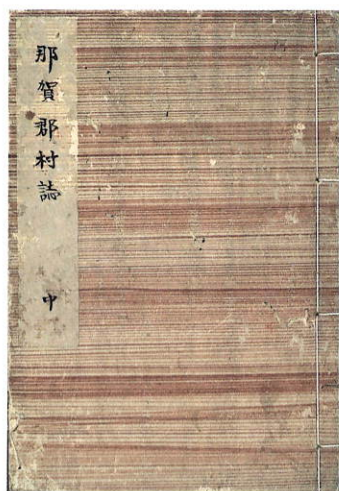 那賀郡村誌 中